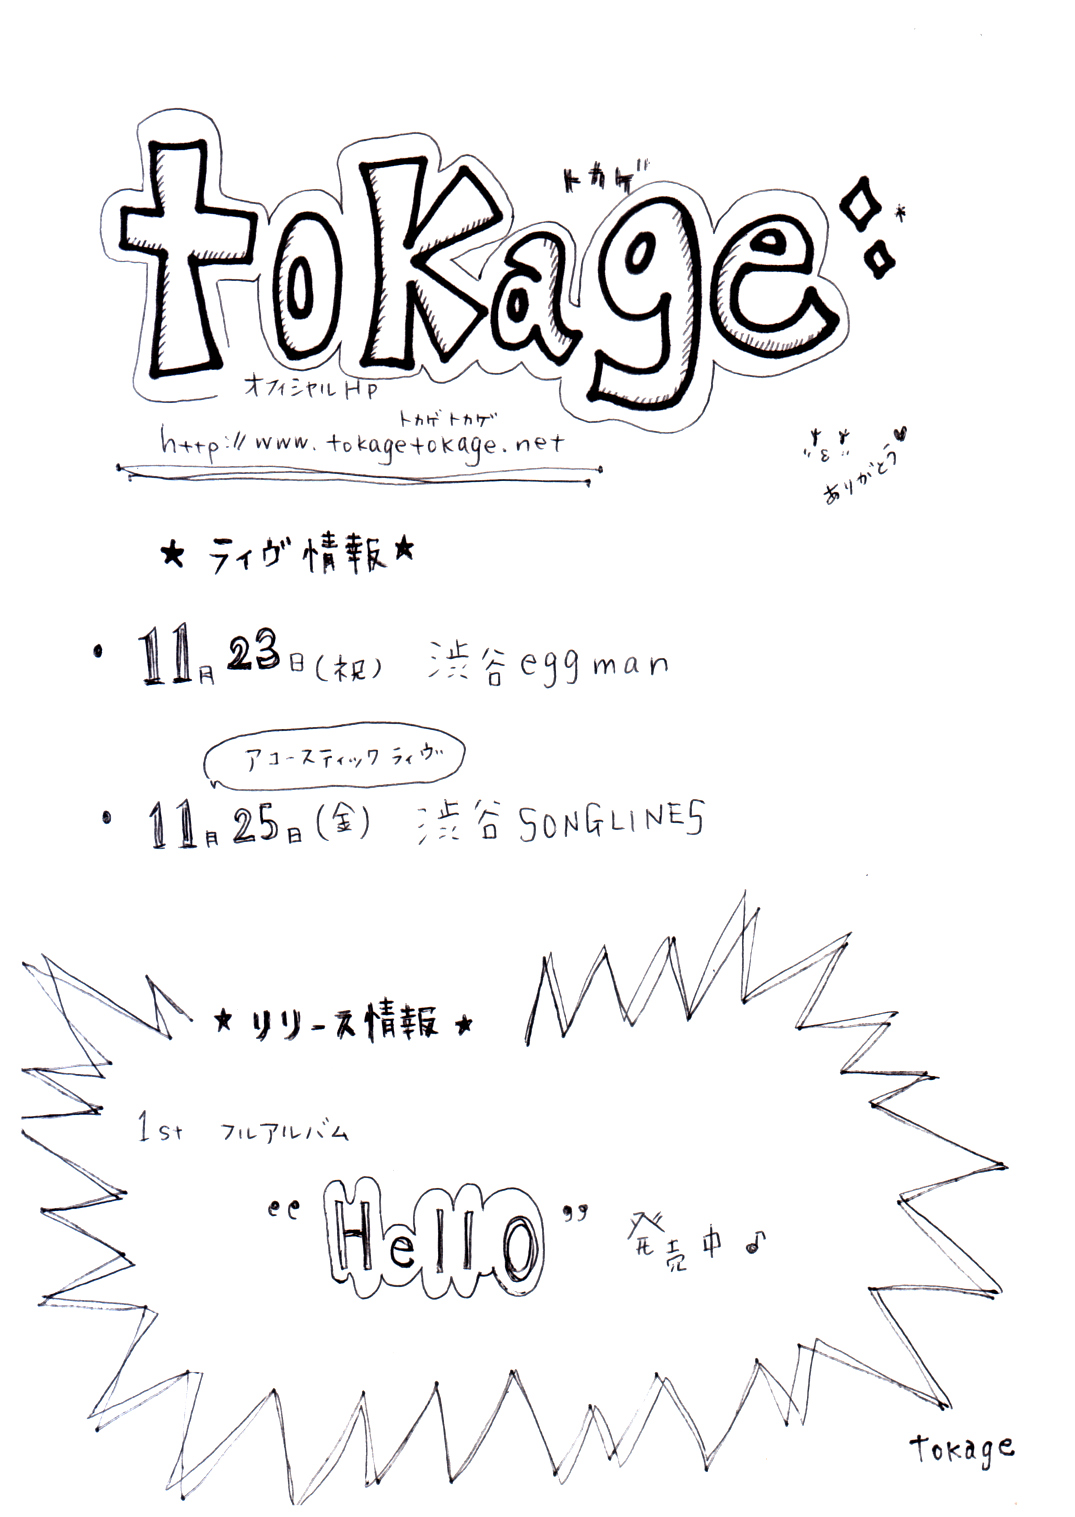 トカゲ
tokage
オフィシャルHP
トカゲトカゲ
http://www.tokagetokage.net
ありがとう
★ ライヴ情報★
• 11月23日(祝) 渋谷eggman
アコースティックライヴ
• 11月25日(金) 渋谷SONGLINES
★ リリース情報 ★
1st フルアルバム
“Hello” 発売中♪
tokage